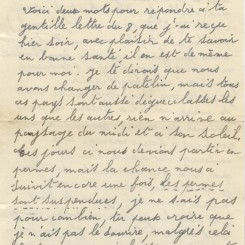 voici deux mots pour répondre à ta
gentille lettre du 8, que j'ai reçu
hier soir, avec plaisir de te savoir
en bonne santé, il en est de même
pour moi. Je te dirai que nous
avons changer de patelin, mais tous
ces pays sont aussi dégueulasses les
uns que les autres, rien n'arrive au
paysage du midi et a son soleil.
Ces jours ci nous devions partir en
permes, mais la chance nous a
suivit encore une fois, les permes
sont suspendues, je ne sais pas
pour combien, tu peux croire que
je n'ais pas le sourire, malgrés cela